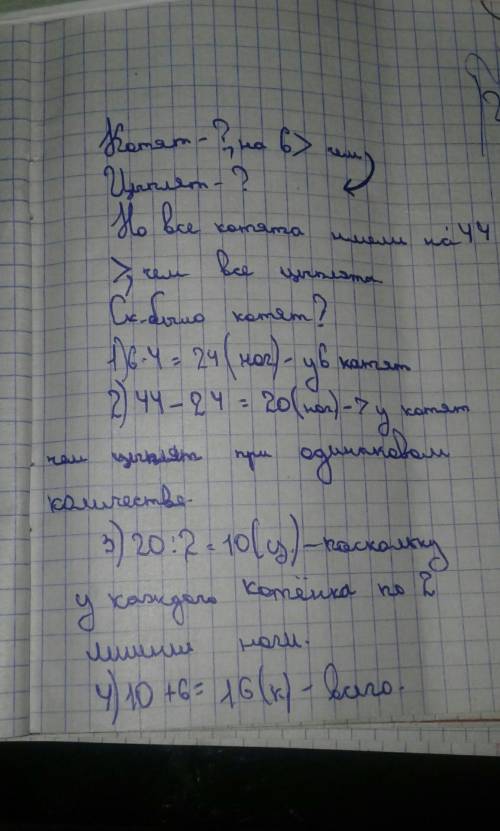 Котят - ?, на 6 > чем
Цыплят - ?
Но все котята имели на 44
>, чем все цыплята
Ск. было котят?
1) 6·4 = 24 (ног) - у 6 котят
2) 44 - 24 = 20 (ног) - > у котят
чем цыплят при одинаковом
количестве.
3) 20:2 = 10 (ц) - поскольку
у каждого котёнка по 2
лишние ноги.
4) 10 + 6 = 16 (к) - всего.